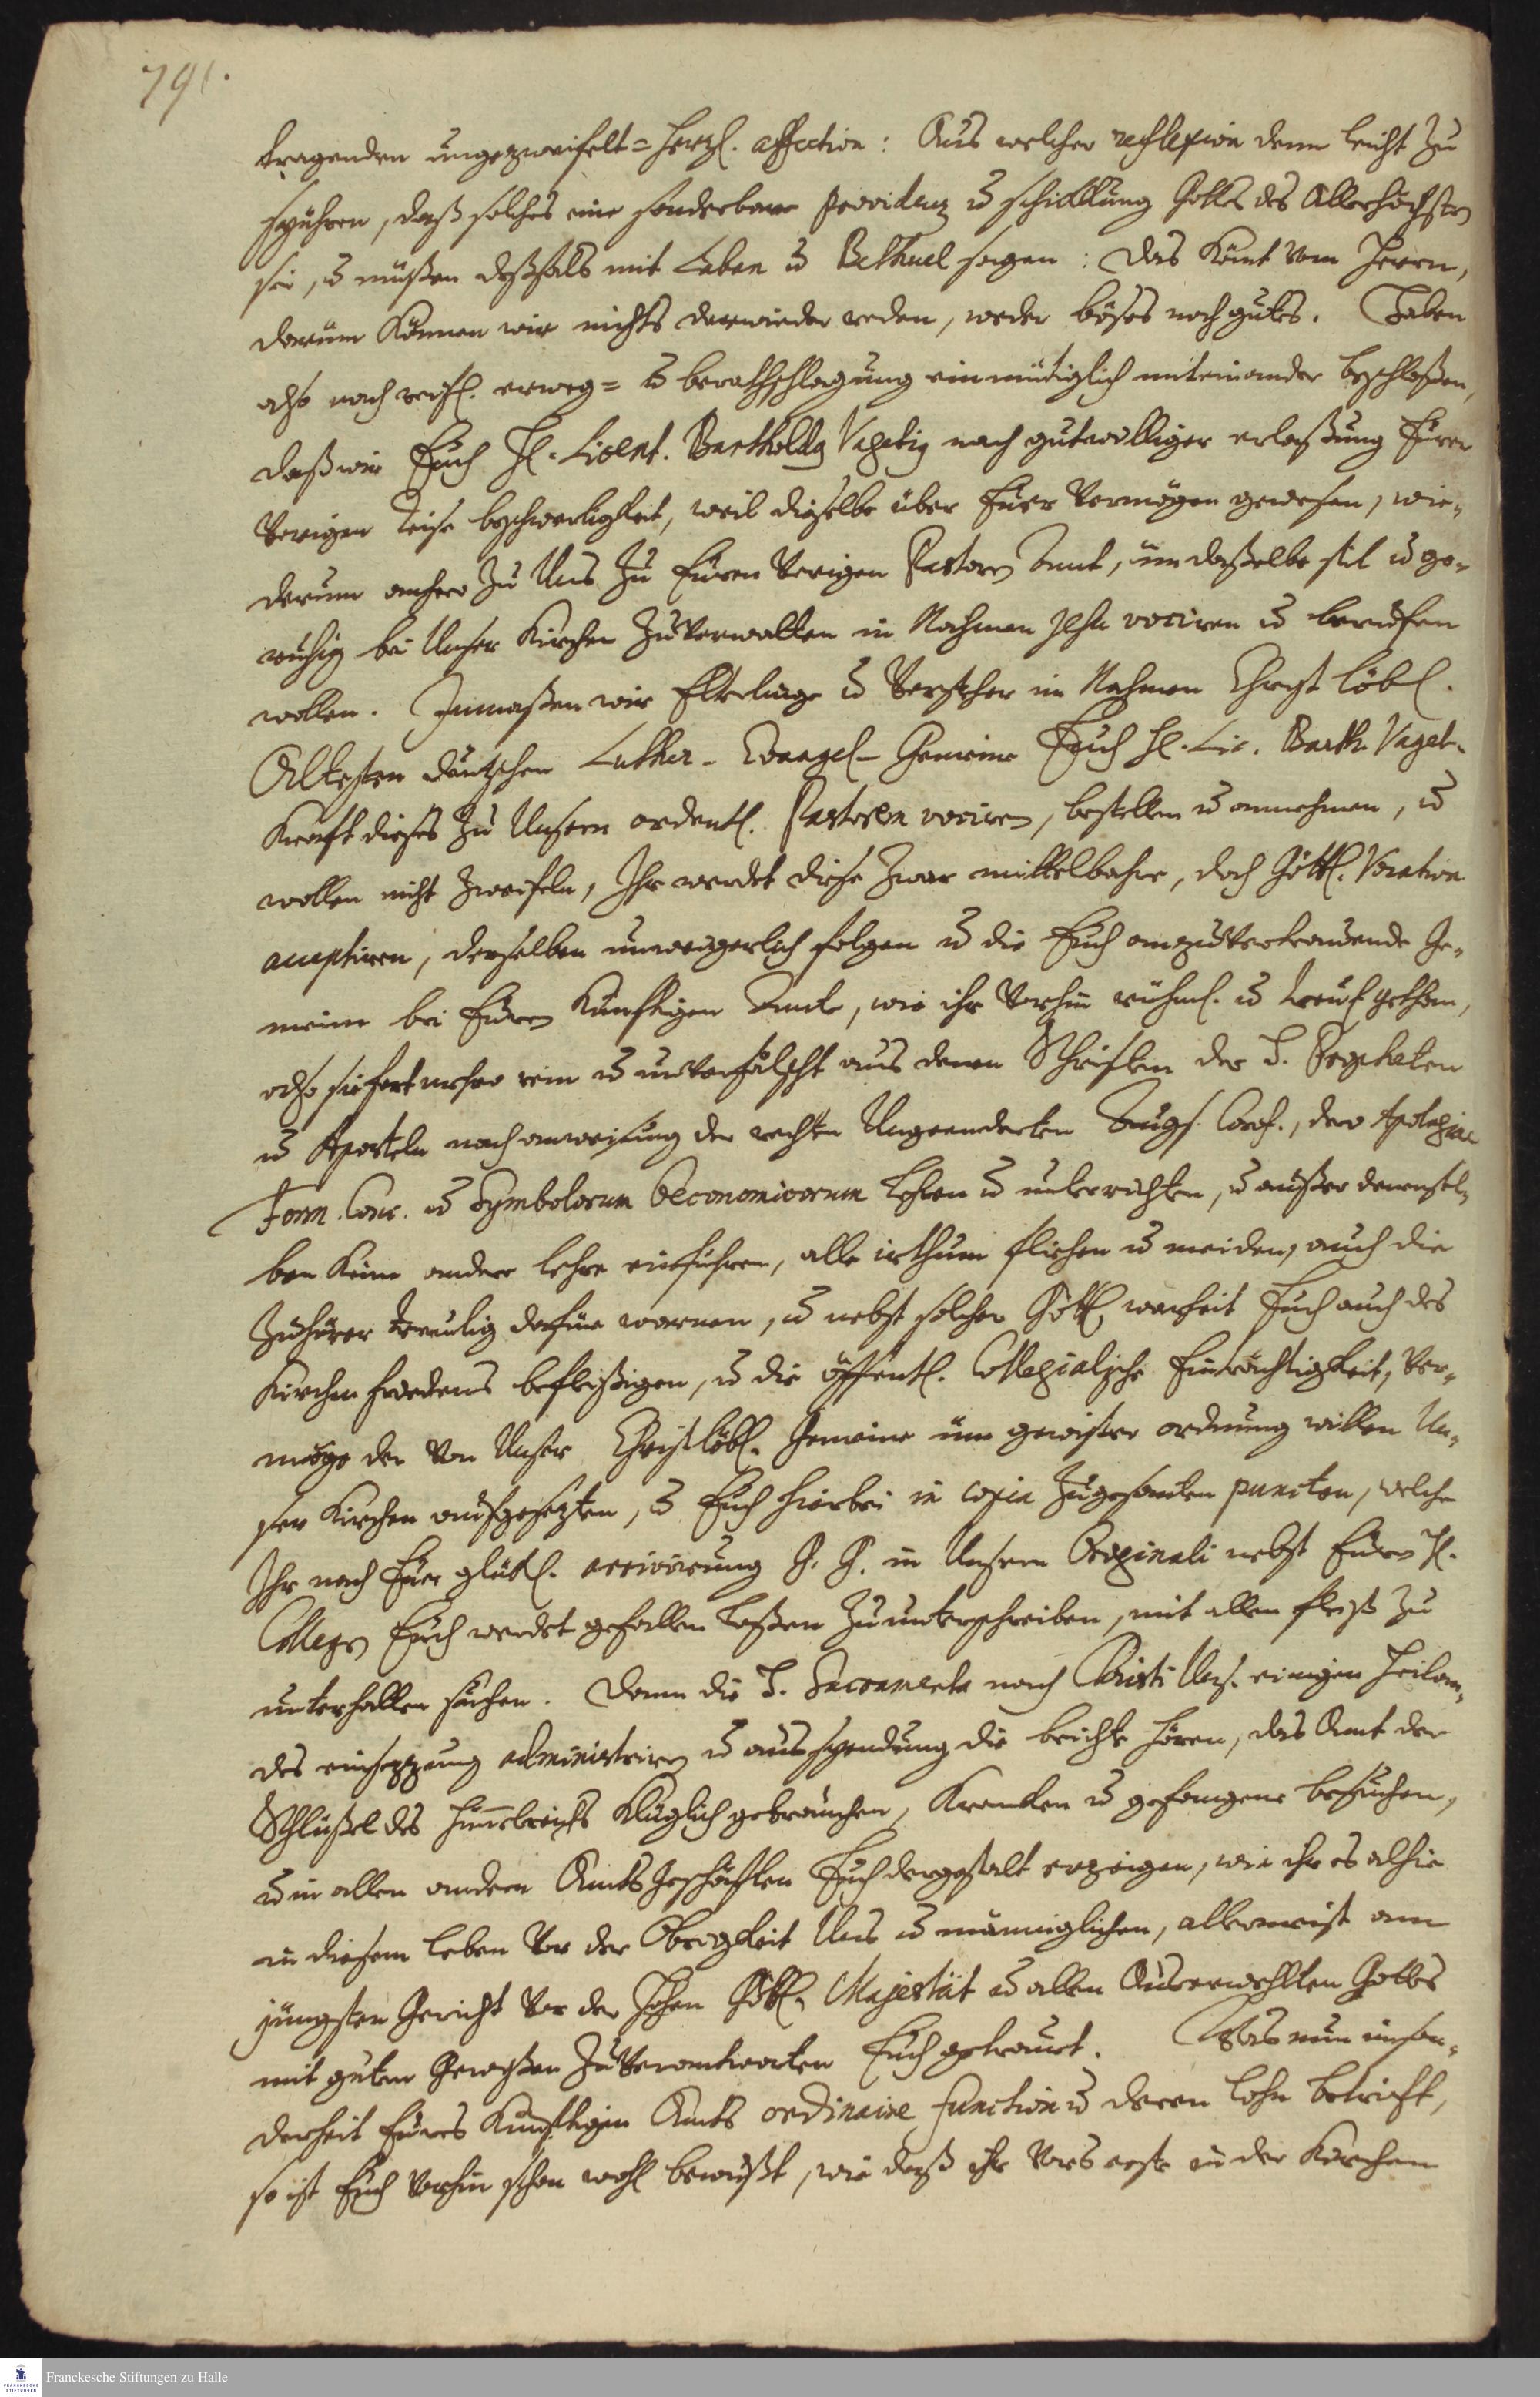 791.
tragenden ungezweifelt= herzl. affection: Aus welcher reflexion denn leicht zu
spühren, daß solches eine sonderbare providenz u schickung Gottes des Allerhöchsten
sei, u müßen deßfals mit Laban u Bethuel sagen: Das kömt vom Herrn,
darum können wir nichts darwieder reden, weder böses noch gutes. Haben
also nach reifl. erweg= u berathschlagung einmütiglich miteinander beschloßen,
daß wir Euch H. Licent. Barthold Vagetig nach gutwilliger erlaßung Eurer
Vorigen reise beschwerligkeit, weil dieselbe über Euer Vermögen gewesen, wie-
derum anhero zu Uns zu Euren Vorigen Pastoren Amt, um daßelbe stil u ge-
ruhig bei Unser Kirchen zu Verwalten in Nahmen Jesu vociren u beruffen
wollen. Inmaßen wir Elterlinge u Vorsteher im Nahmen Christ löbl.
Altesten deutschen Luther- Evangel- Gemeine Euch H. Lic. Barth. Vaget.
Kraft dieses zu Unsern ordentl. Pastoren vociren, bestellen u annehmen, u
wollen nicht zweifeln, Ihr werdet diese zwar mittelbahre, doch Göttl. Vocation
acceptiren, derselben unweigerlich folgen u die Euch anzuvertrauende Ge-
meine bei Euren künftigen Amte, wie ihr Vorhin rühml. u treul. gethan,
also fürterhero rein u unverfälscht aus denen Schriften der H. Propheten
u Aposteln nach anweisung der rechten Ungeenderten Augs. Conf., dero Apologiae
Form. Conc. u Symbolorum Oeconomicorum lehren u unterrichten, u außer denensel-
ben keine andere lehre einführen, alle irthum fliehen u meiden, auch die
Zuhörer treulig dafür warnen, u nebst solcher Göttl. warheit Euch auch des
Kirchen friedens befleißigen, u die öffentl. Collegialische Einträchtigkeit, Ver-
möge der von Unser Christlöbl. Gemeine um gewisser ordnung willen Un-
ser Kirchen aufgesetzten, u Euch hierbei in copia zugesandten puncten, welche
Ihr nach Eurer glükl. arrivirung G. G. in Unsern Originali nebst Euren H.
Collegen Euch werdet gefallen laßen zu unterschreiben, mit allen fleiß zu
unterhalten suchen. Dann die H. Sacramenta nach Christi Uns. einigen Heilan-
des einsezzung administriren u ausspendung die beichte hören, das Amt der
Schlüßel des Himmelreichs klüglich gebrauchen, Kranken u gefangene besuchen,
u in allen andern Amts Geschäften Euch dergestalt erzeigen, wie ihr es alhie
in diesem leben Vor der Obrigkeit Uns u männiglichen, allermeist am
jüngsten Gericht Vor der hohen Göttl. Majestät u allen Auserwehlten Gottes
mit guten Gewißen zu Verantworten Euch getrauet. Was nun inson-
derheit Eures künftigen Amts ordinaire function u deren lohn betrift,
so ist Euch Vorhin schon wohl bewußt, wie daß ihr Vors erste in der Kirchen
Franckesche Stiftungen zu Halle